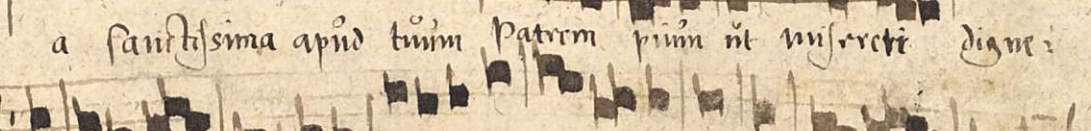 a sanctissima apud tuum Patrem pium ut misereri digne: